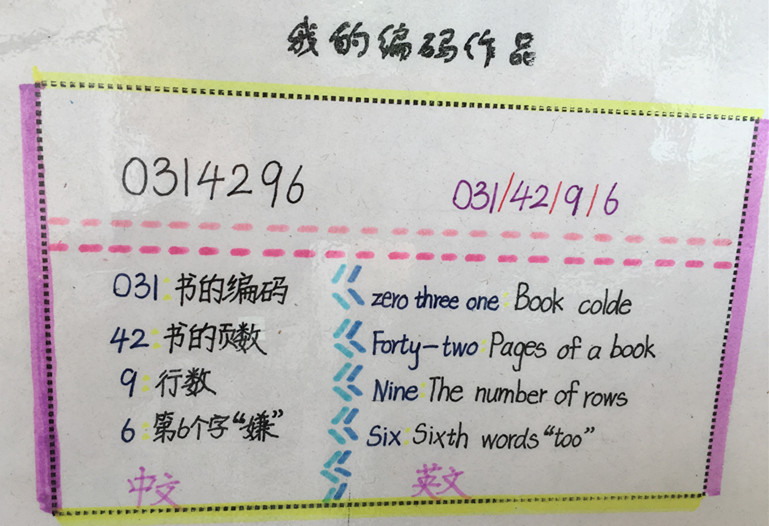 我的编码作品
0314296
031/42/9/6
031:书的编码
42:书的页数
9:行数
6:第6个字“嫌”
中文
zero three one:Book colde
Forty-two:Pages of a book
Nine:The number of rows
Six:Sixth words“too”
英文